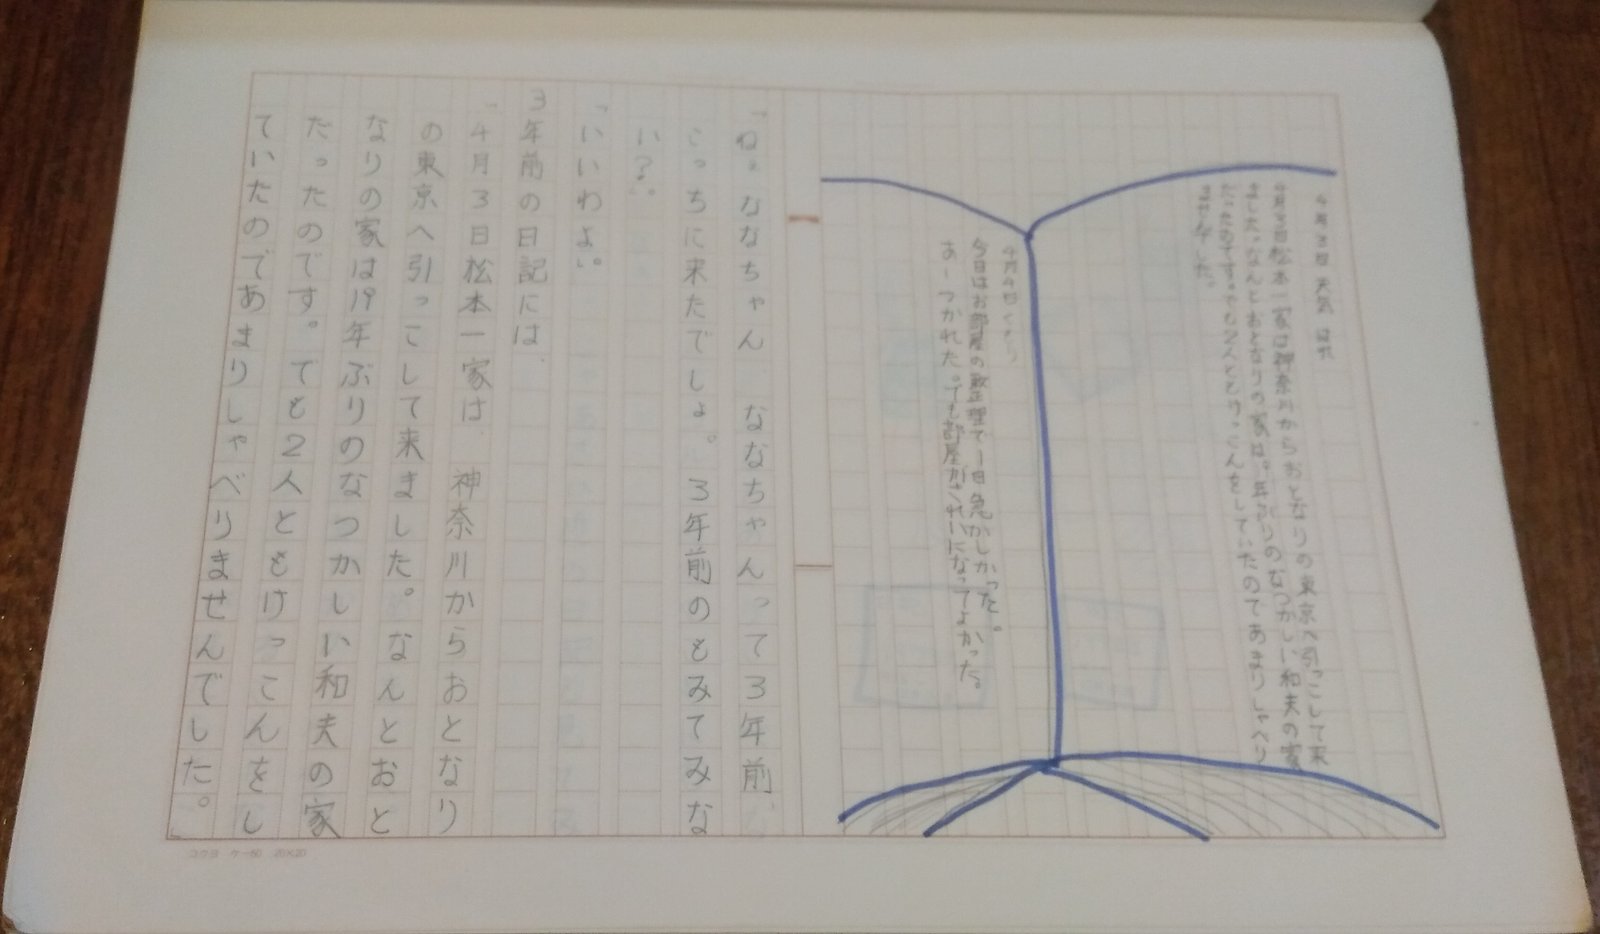 4月3日 天気 はれ
4月3日松本一家は神奈川からおとなりの東京へ引っこして来
ました。なんとおとなりの家は。年ぶりのなつかしい和夫の家
だったのです。でも2人ともけっこんをしていたのであまりしゃべり
ませんでした。
4月4日くもり
今日はお部屋の整理で1日急がしかった。
あーつかれた。でも部屋がきれいになってよかった。
「ねぇななちゃん ななちゃんって3年前、
こっちに来たでしょ。3年前のもみてみな
い?」。
「いいわよ」。
3年前の日記には、
「4月3日松本一家は、神奈川からおとなり
の東京へ引っこして来ました。なんとおと
なりの家は19年ぶりのなつかしい和夫の家
だったのです。でも2人ともけっこんをし
ていたのであまりしゃべりませんでした。」
コクヨ ケー50 20×20